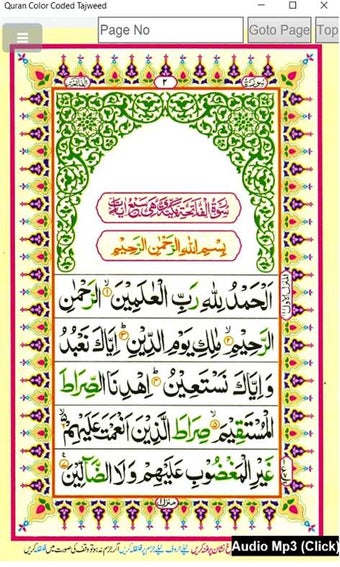 Quran Color Coded Tajweed
Page No
Goto Page
Top
٢
سُوْرَةُ الْفَاتِحَةِ مَكِّيَّةٌ وَّهِيَ سَبْعُ اٰيَاتٍ
بِسْمِ اللّٰهِ الرَّحْمٰنِ الرَّحِيْمِ
اَلْحَمْدُ لِلّٰهِ رَبِّ الْعٰلَمِيْنَ ۙ﴿۱﴾ الرَّحْمٰنِ
الرَّحِيْمِ ۙ﴿۲﴾ مٰلِكِ يَوْمِ الدِّيْنِ ؕ﴿۳﴾ اِيَّاكَ نَعْبُدُ
وَ اِيَّاكَ نَسْتَعِيْنُ ؕ﴿۴﴾ اِهْدِنَا الصِّرَاطَ
الْمُسْتَقِيْمَ ۙ﴿۵﴾ صِرَاطَ الَّذِيْنَ اَنْعَمْتَ عَلَيْهِمْ ۙ۬﴿۶﴾
غَيْرِ الْمَغْضُوْبِ عَلَيْهِمْ وَلَا الضَّآلِّيْنَ ﴿۷﴾
منزل ١
Audio Mp3 (Click)